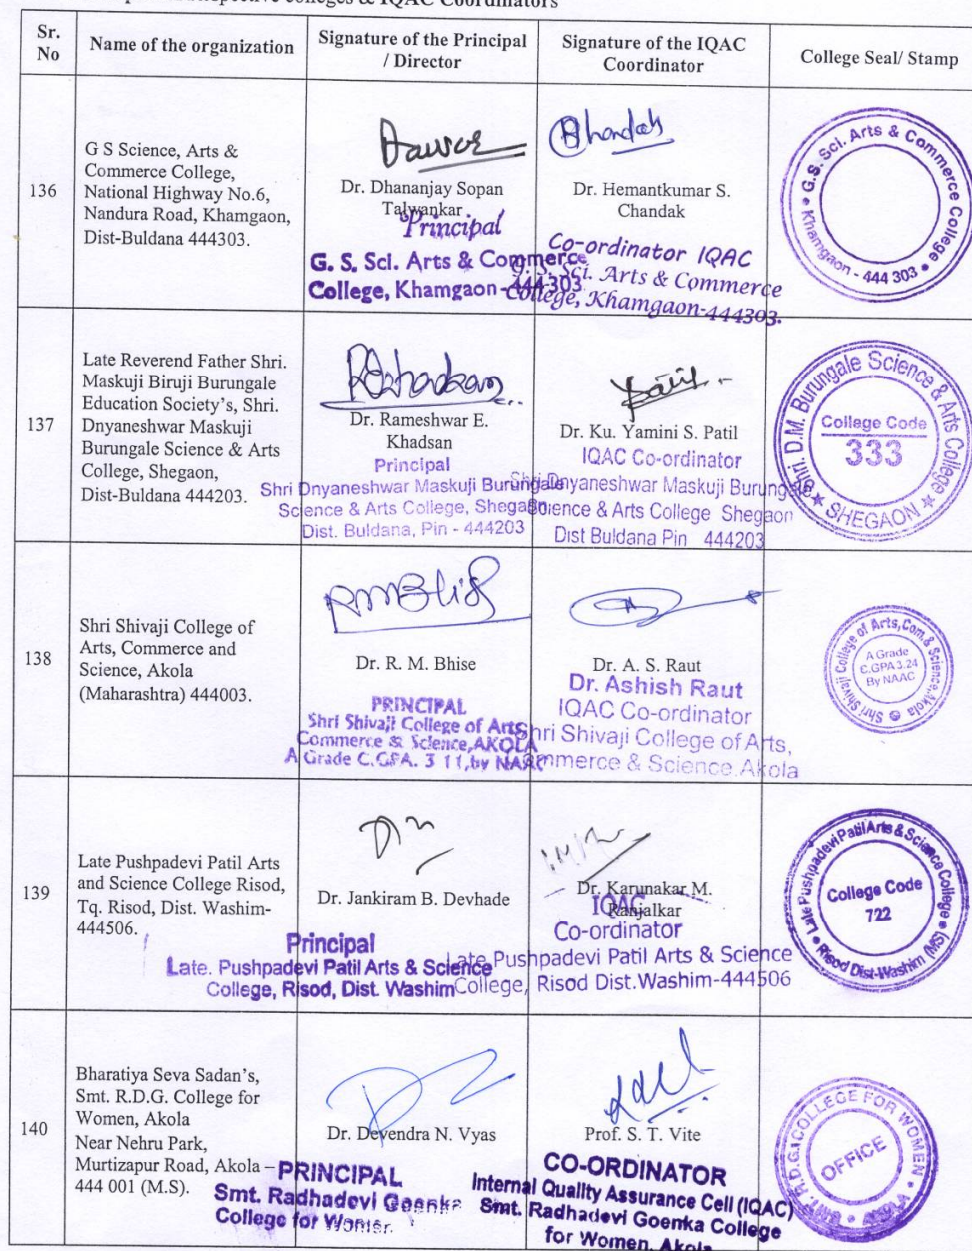 colleges & IQAC Coordinators
Sr. No
Name of the organization
Signature of the Principal / Director
Signature of the IQAC Coordinator
College Seal/ Stamp
136
G S Science, Arts &
Commerce College,
National Highway No.6,
Nandura Road, Khamgaon,
Dist-Buldana 444303.
Dr. Dhananjay Sopan
Talwankar
Principal
G. S. Sci. Arts & Commerce
College, Khamgaon-444303
Chandak
Dr. Hemantkumar S.
Chandak
Co-ordinator IQAC
G. S. Sci. Arts & Commerce
College, Khamgaon-444303.
G.S. Sci. Arts & Commerce College
Khamgaon - 444 303
137
Late Reverend Father Shri.
Maskuji Biruji Burungale
Education Society's, Shri.
Dnyaneshwar Maskuji
Burungale Science & Arts
College, Shegaon,
Dist-Buldana 444203.
Dr. Rameshwar E.
Khadsan
Principal
Shri Dnyaneshwar Maskuji Burungale
Science & Arts College, Shegaon
Dist. Buldana, Pin - 444203
Patil
Dr. Ku. Yamini S. Patil
IQAC Co-ordinator
Shri Dnyaneshwar Maskuji Burungale
Science & Arts College Shegaon
Dist Buldana Pin 444203
Shri. D.M. Burungale Science & Arts College
College Code
333
SHEGAON
138
Shri Shivaji College of
Arts, Commerce and
Science, Akola
(Maharashtra) 444003.
Dr. R. M. Bhise
PRINCIPAL
Shri Shivaji College of Arts
Commerce & Science, AKOLA
A Grade C.GPA. 3 11, by NAAC
Dr. A. S. Raut
Dr. Ashish Raut
IQAC Co-ordinator
Shri Shivaji College of Arts,
Commerce & Science, Akola
Shri Shivaji College of Arts, Com. & Science, Akola
A Grade
C.GPA 3.24
By NAAC
139
Late Pushpadevi Patil Arts
and Science College Risod,
Tq. Risod, Dist. Washim-
444506.
Dr. Jankiram B. Devhade
Principal
Late. Pushpadevi Patil Arts & Science
College, Risod, Dist. Washim
Dr. Karunakar M.
Ranjalkar
IQAC
Co-ordinator
Late Pushpadevi Patil Arts & Science
College, Risod Dist.Washim-444506
Late Pushpadevi Patil Arts & Science College
College Code
722
Risod Dist-Washim (MS)
140
Bharatiya Seva Sadan's,
Smt. R.D.G. College for
Women, Akola
Near Nehru Park,
Murtizapur Road, Akola –
444 001 (M.S).
Dr. Devendra N. Vyas
PRINCIPAL
Smt. Radhadevi Goenka
College for Women.
Prof. S. T. Vite
CO-ORDINATOR
Internal Quality Assurance Cell (IQAC)
Smt. Radhadevi Goenka College
for Women, Akola
SMT. R.D.G. COLLEGE FOR WOMEN
OFFICE
AKOLA